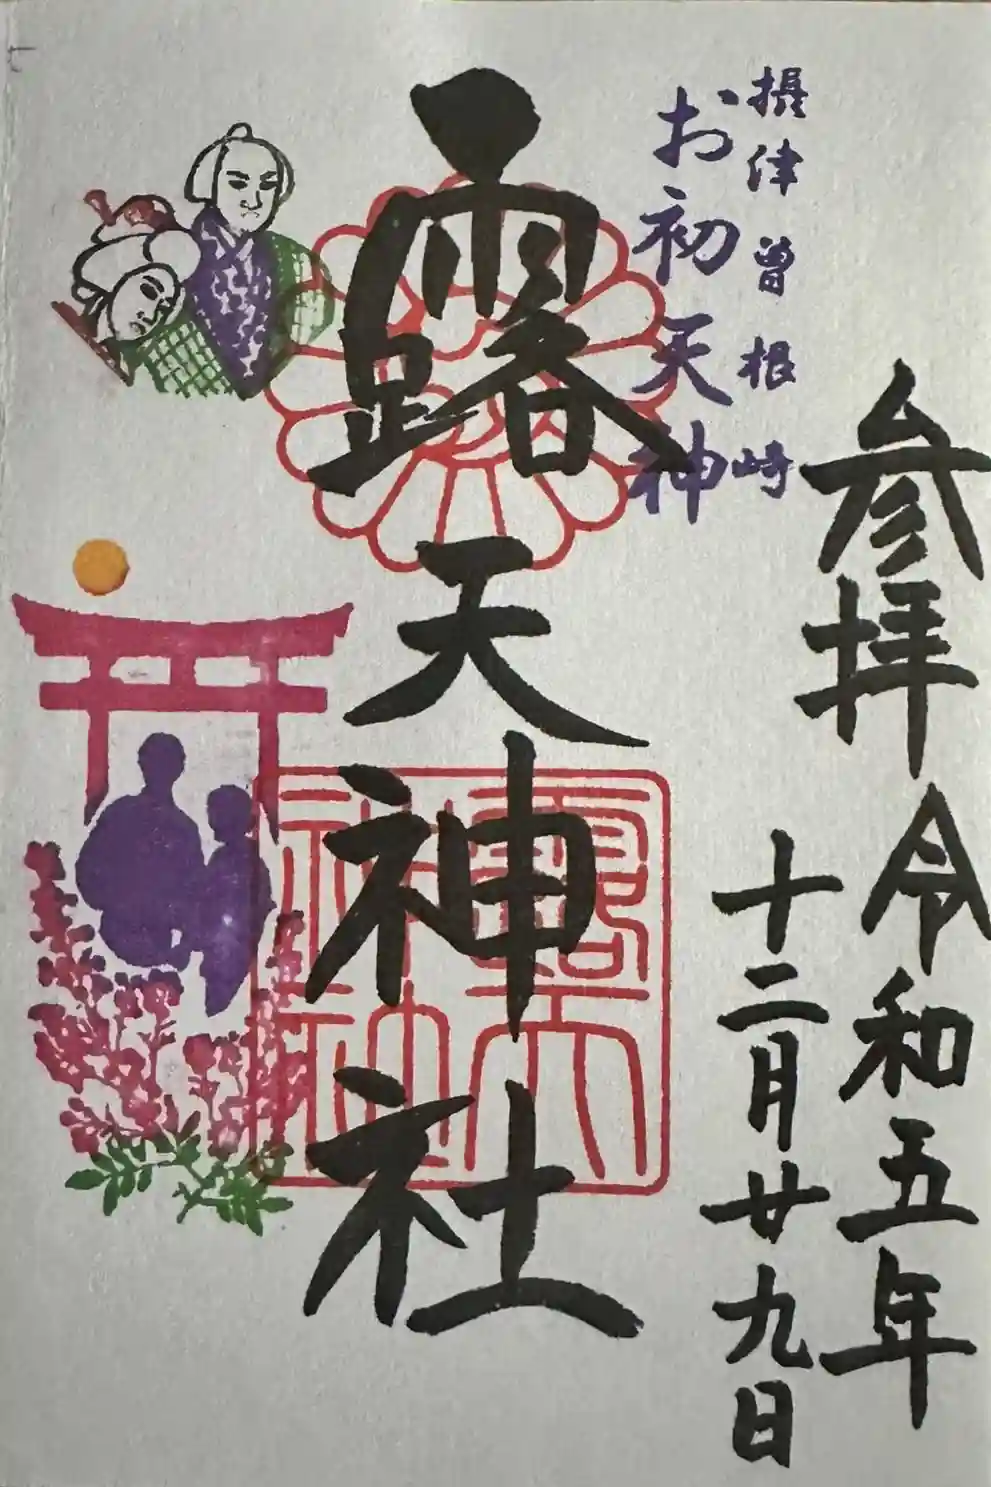 参拝 令和五年
十二月廿九日
摂津曽根崎
お初天神
露天神社
露天神社